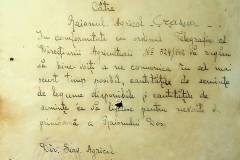 Către
Raionul Agricol "Crașna"
In conformitate cu ordinul Telegrafic al
Direcțiunii Agriculturii No 328/948 Vă rugăm
să bine voiți a ne comunica în cel mai
scurt timp posibil, cantitățile de semințe
de legume disponibile și cantitățile de
semințe ce Vă lipsesc pentru nevoile de
primăvară a Raionului Dvs.
Dir. Serv. Agricol